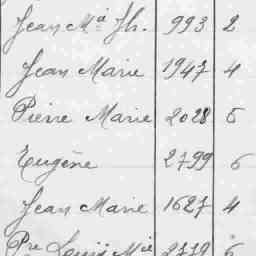 Jean Mie Jh. 993 2
Jean Marie 1947 4
Pierre Marie 2028 5
Eugène 2799 6
Jean Marie 1627 4
Pre Louis Mie 2779 6